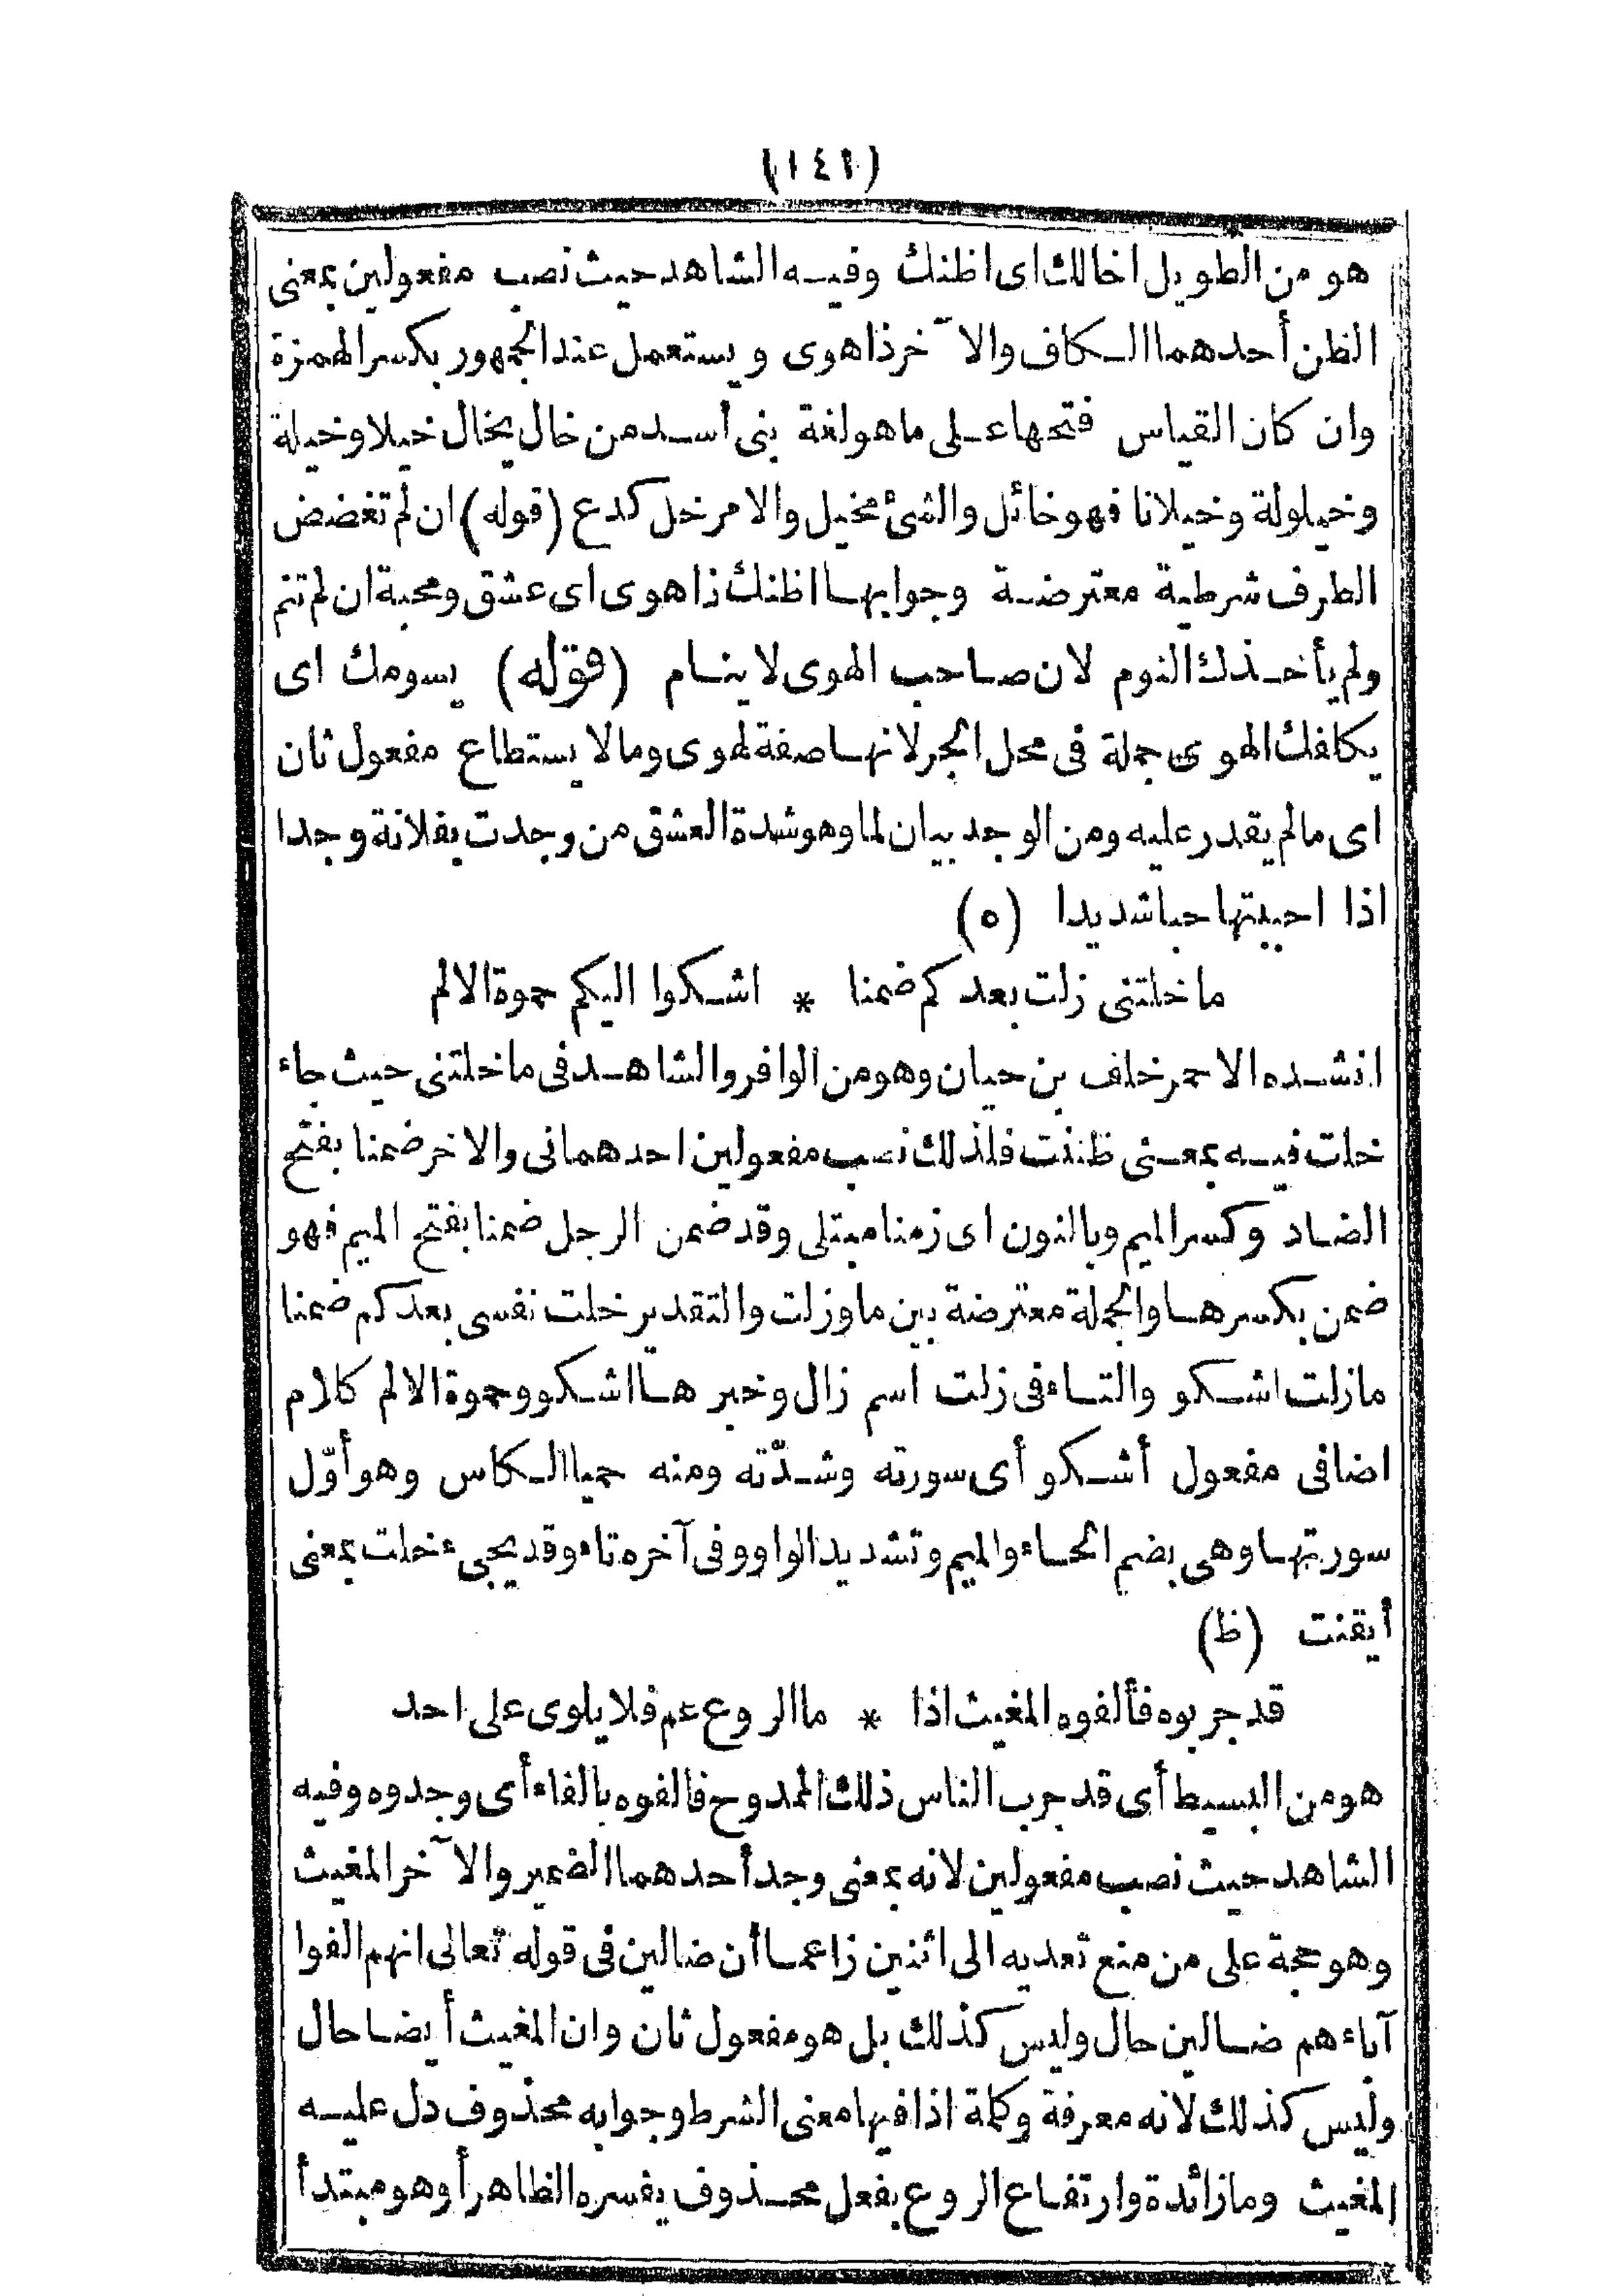 (١٤١)
هو من الطويل اخالك اى اظنك وفيه الشاهد حيث نصب مفعولين بمعنى
الظن أحدهما الكاف والآخر ذا هوى ويستعمل عند الجمهور بكسر الهمزة
وان كان القياس فتحها على ما هو لغة بنى أسد من خال يخال خيلا وخيلة
وخيلولة وخيلانا فهو خائل والشئ مخيل والامر خل كدع (قوله) ان لم تغضض
الطرف شرطية معترضة وجوابها اظنك ذا هوى اى عشق ومحبة ان لم تنم
ولم يأخذك النوم لان صاحب الهوى لا ينام (قوله) يسومك اى
يكافك الهوى جملة فى محل الجر لانها صفة لهوى وما لا يستطاع مفعول ثان
اى ما لم يقدر عليه ومن الوجد بيان لما وهو شدة العشق من وجدت بفلانة وجدا
اذا احببتها حبا شديدا (ه)
ما خلتنى زلت بعدكم ضمنا * اشكوا اليكم حموة الالم
انشده الاحمر خلف بن حيان وهو من الوافر والشاهد فى ما خلتنى حيث جاء
خلت فيه بمعنى ظننت فلذلك نصب مفعولين احدهما نى والاخر ضمنا بفتح
الضاد وكسر الميم وبالنون اى زمنا مبتلى وقد ضمن الرجل ضمنا بفتح الميم فهو
ضمن بكسرها والجملة معترضة بين ما وزلت والتقدير خلت نفسى بعدكم ضمنا
مازلت اشكو والتاء فى زلت اسم زال وخبرها اشكو وحموة الالم كلام
اضافى مفعول أشكو أى سورته وشدّته ومنه حميا الكاس وهو أوّل
سورتها وهى بضم الحاء والميم وتشديد الواو وفى آخره تاء وقد يجىء خلت بمعنى
أيقنت (ظ)
قد جربوه فألفوه المغيث اذا * ما الروع عم فلا يلوى على احد
هو من البسيط أى قد جرب الناس ذلك الممدوح فالفوه بالفاء أى وجدوه وفيه
الشاهد حيث نصب مفعولين لانه بمعنى وجد أحدهما الضمير والآخر المغيث
وهو حجة على من منع تعديه الى اثنين زاعما أن ضالين فى قوله تعالى انهم الفوا
آباءهم ضالين حال وليس كذلك بل هو مفعول ثان وان المغيث أيضا حال
وليس كذلك لانه معرفة وكلمة اذا فيها معنى الشرط وجوابه محذوف دل عليه
المغيث وما زائدة وارتفاع الروع بفعل محذوف يفسره الظاهر أو هو مبتدأ